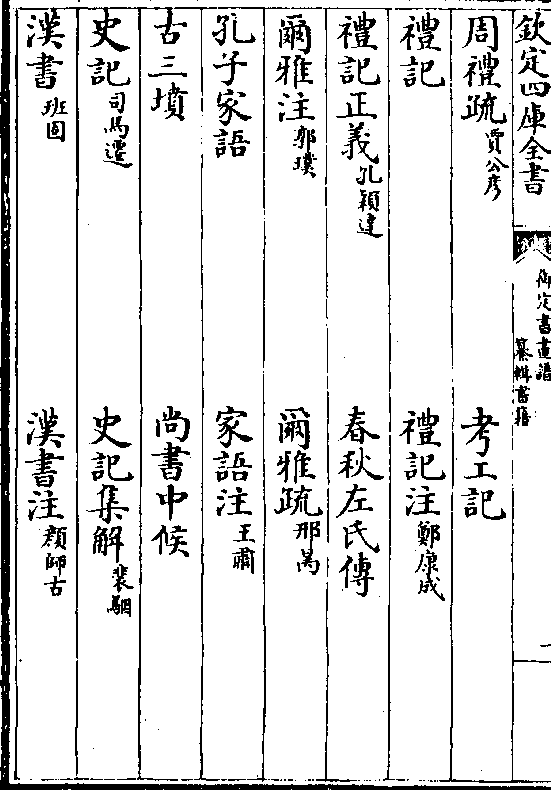 欽定四庫全書
御定書畫譜
纂輯書籍
二
周禮疏 賈公彥 考工記
禮記 禮記注 鄭康成
禮記正義 孔穎達 春秋左氏傳
爾雅注 郭璞 爾雅疏 邢昺
孔子家語 家語注 王肅
古三墳 尚書中候
史記 司馬遷 史記集解 裴駰
漢書 班固 漢書注 顏師古